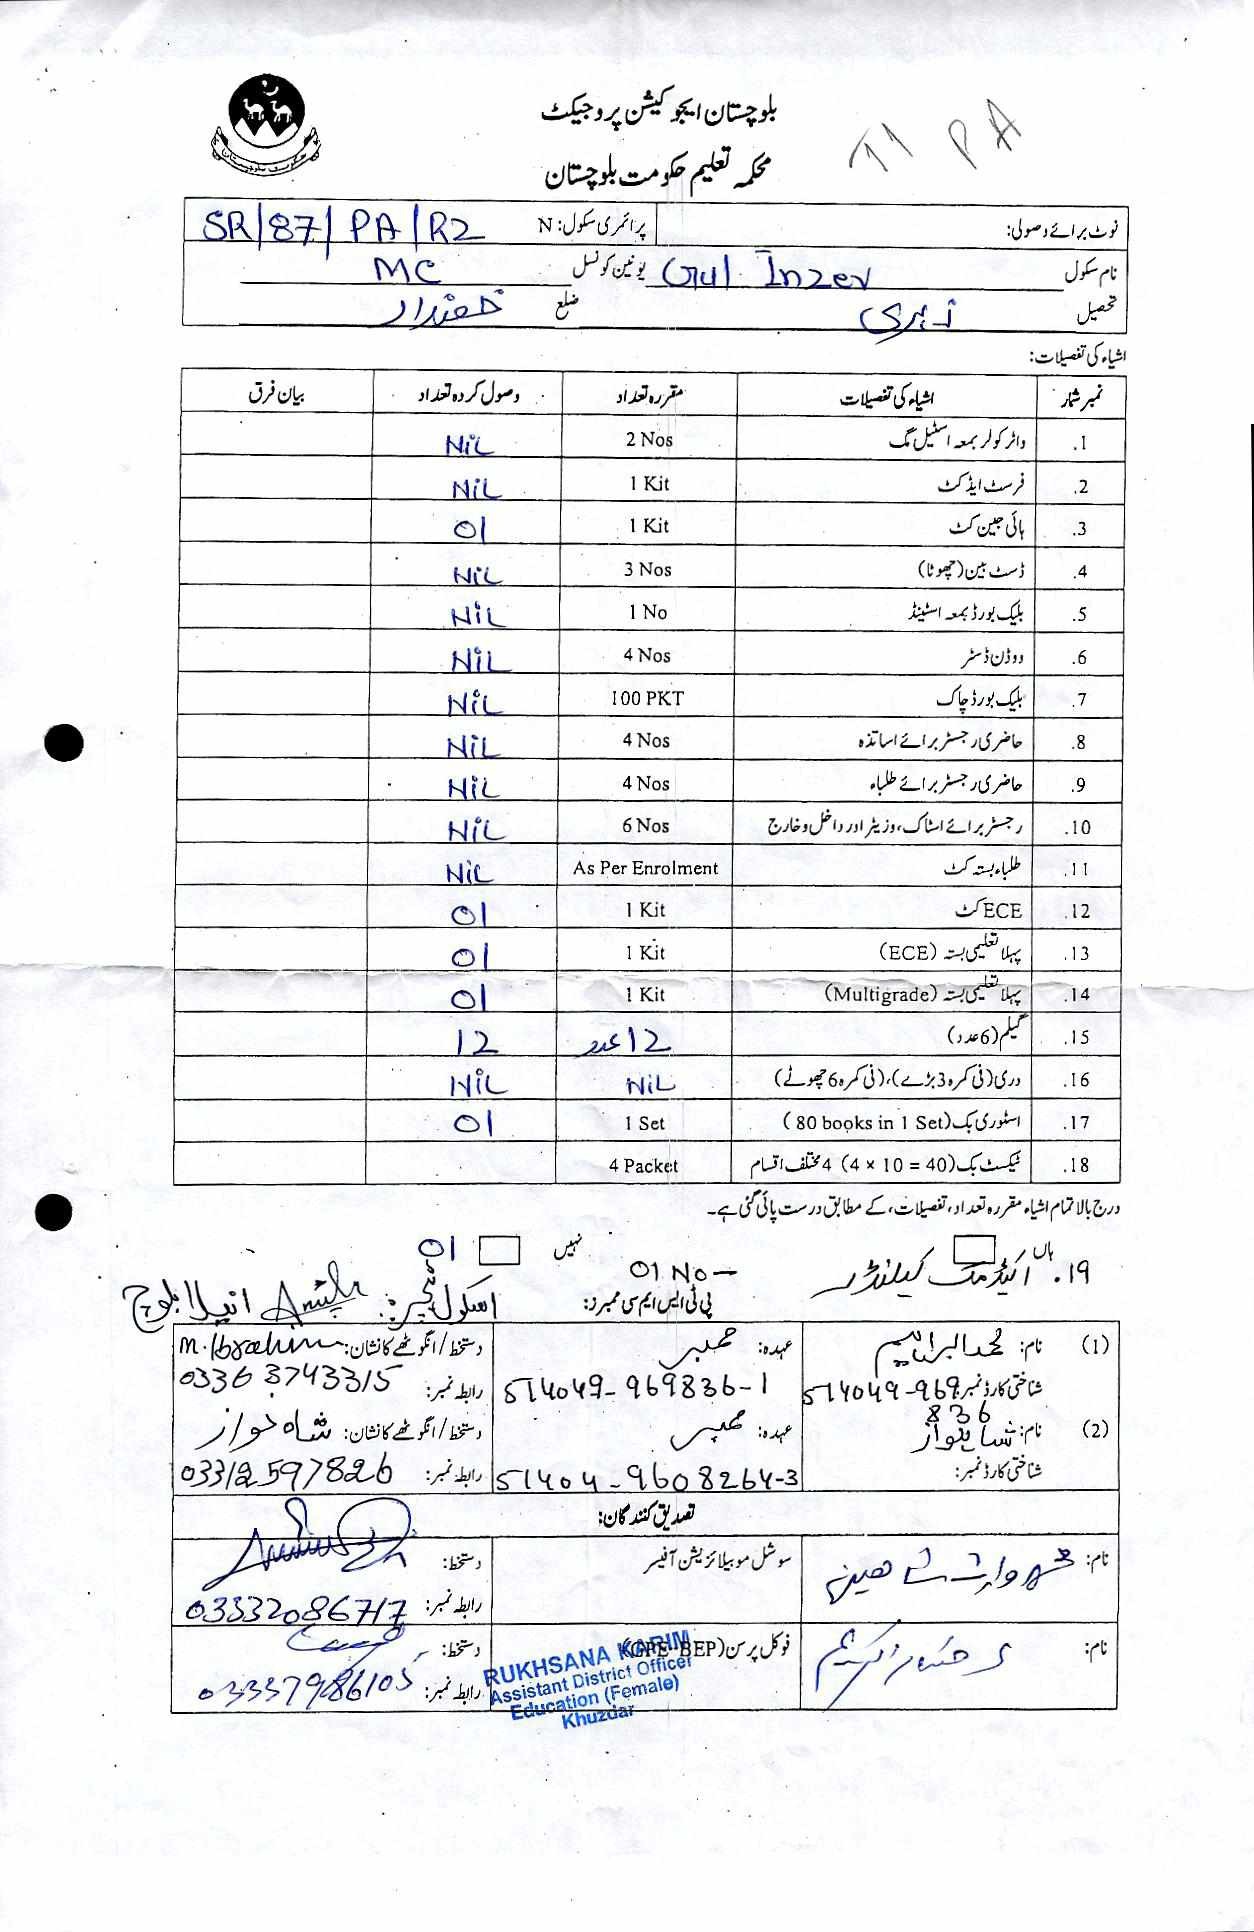 بلوچستان ایجوکیشن پروجیکٹ
T1 PA
محکمہ تعلیم حکومت بلوچستان
نوٹ برائے وصولی: پرائمری سکول: N SR/87/PA/R2
نام سکول Gul Inzer یونین کونسل MC
تحصیل زہری ضلع خضدار
اشیاء کی تفصیلات:
نمبر شمار اشیاء کی تفصیلات مقررہ تعداد وصول کردہ تعداد بیان فرق
1. واٹر کولر بمعہ اسٹیل مگ 2 Nos NiL
2. فرسٹ ایڈ کٹ 1 Kit NiL
3. ہائی جین کٹ 1 Kit 01
4. ڈسٹ بین (چھوٹا) 3 Nos NiL
5. بلیک بورڈ بمعہ اسٹینڈ 1 No NiL
6. ووڈن ڈسٹر 4 Nos NiL
7. بلیک بورڈ چاک 100 PKT NiL
8. حاضری رجسٹر برائے اساتذہ 4 Nos NiL
9. حاضری رجسٹر برائے طلباء 4 Nos NiL
10. رجسٹر برائے اسٹاک، وزیٹر اور داخل و خارج 6 Nos NiL
11. طلباء بستہ کٹ As Per Enrolment NiL
12. ECE کٹ 1 Kit 01
13. پہلا تعلیمی بستہ (ECE) 1 Kit 01
14. پہلا تعلیمی بستہ (Multigrade) 1 Kit 01
15. گیلم (6 عدد) 12 عدد 12
16. دری (فی کمرہ 3 بڑے)، (فی کمرہ 6 چھوٹے) NiL NiL
17. اسٹوری بک (80 books in 1 Set) 1 Set 01
18. ٹیکسٹ بک (4 x 10 = 40) 4 مختلف اقسام 4 Packet
درج بالا تمام اشیاء مقررہ تعداد، تفصیلات، کے مطابق درست پائی گئی ہے۔
ہاں نہیں 01
۱۹. اکیڈمک کیلنڈر 01 No-
پی ٹی ایس ایم سی ممبرز: اسکول ٹیچر: انیلا بلوچ
(1) نام: محمد ابراہیم عہدہ: ممبر دستخط/انگوٹھے کا نشان: M. Ibrahim
شناختی کارڈ نمبر: 514049-969 836 514049-969836-1 رابطہ نمبر: 0336 3743315
(2) نام: شاہنواز عہدہ: ممبر دستخط/انگوٹھے کا نشان: شاہ نواز
شناختی کارڈ نمبر: 51404-9608264-3 رابطہ نمبر: 03312597826
تصدیق کنندگان:
نام: سوشل موبیلائزیشن آفیسر دستخط:
رابطہ نمبر: 03332086717
نام: فوکل پرسن (GPE-BEP) دستخط:
رابطہ نمبر: 03337986105
RUKHSANA KARIM
Assistant District Officer
Education (Female)
Khuzdar